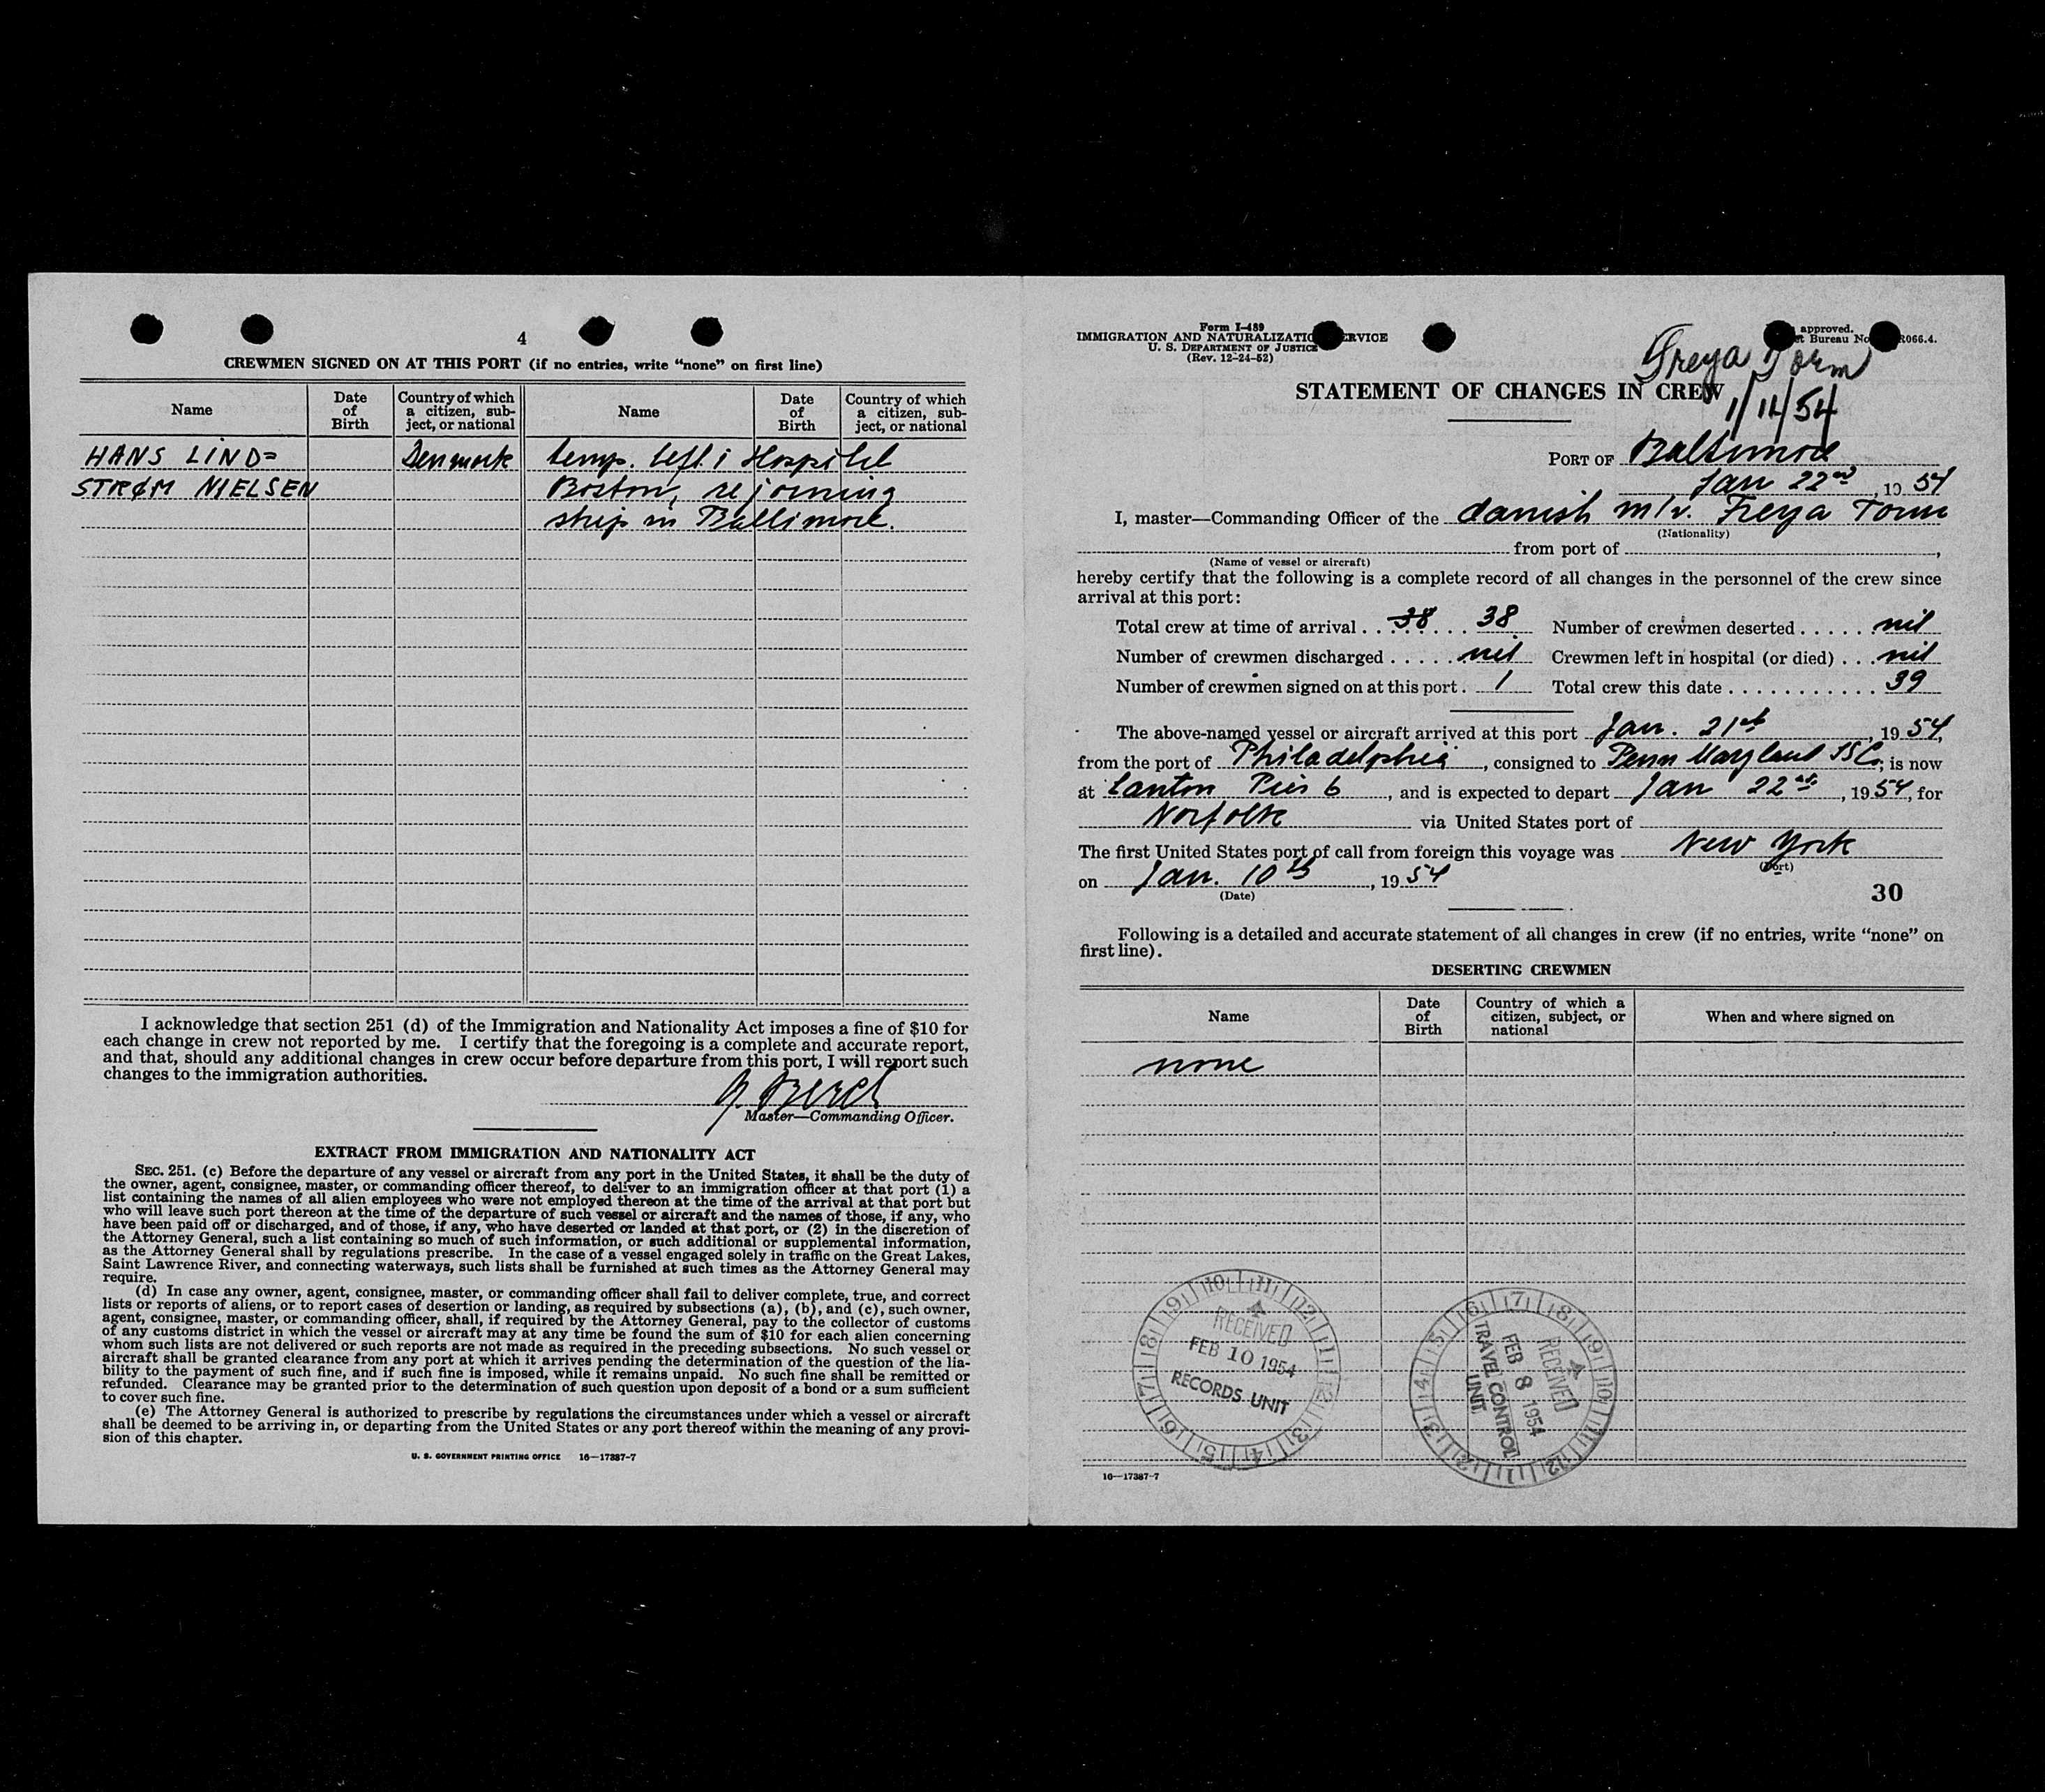 4
CREWMEN SIGNED ON AT THIS PORT (if no entries, write “none” on first line)
Name
Date of Birth
Country of which a citizen, subject, or national
Name
Date of Birth
Country of which a citizen, subject, or national
HANS LIND= Denmark temp. left i Hospital
STRØM NIELSEN Boston, rejoining
ship in Baltimore.
I acknowledge that section 251 (d) of the Immigration and Nationality Act imposes a fine of $10 for
each change in crew not reported by me. I certify that the foregoing is a complete and accurate report,
and that, should any additional changes in crew occur before departure from this port, I will report such
changes to the immigration authorities.
Master—Commanding Officer.
EXTRACT FROM IMMIGRATION AND NATIONALITY ACT
SEC. 251. (c) Before the departure of any vessel or aircraft from any port in the United States, it shall be the duty of
the owner, agent, consignee, master, or commanding officer thereof, to deliver to an immigration officer at that port (1) a
list containing the names of all alien employees who were not employed thereon at the time of the arrival at that port but
who will leave such port thereon at the time of the departure of such vessel or aircraft and the names of those, if any, who
have been paid off or discharged, and of those, if any, who have deserted or landed at that port, or (2) in the discretion of
the Attorney General, such a list containing so much of such information, or such additional or supplemental information,
as the Attorney General shall by regulations prescribe. In the case of a vessel engaged solely in traffic on the Great Lakes,
Saint Lawrence River, and connecting waterways, such lists shall be furnished at such times as the Attorney General may
require.
(d) In case any owner, agent, consignee, master, or commanding officer shall fail to deliver complete, true, and correct
lists or reports of aliens, or to report cases of desertion or landing, as required by subsections (a), (b), and (c), such owner,
agent, consignee, master, or commanding officer, shall, if required by the Attorney General, pay to the collector of customs
of any customs district in which the vessel or aircraft may at any time be found the sum of $10 for each alien concerning
whom such lists are not delivered or such reports are not made as required in the preceding subsections. No such vessel or
aircraft shall be granted clearance from any port at which it arrives pending the determination of the question of the lia-
bility to the payment of such fine, and if such fine is imposed, while it remains unpaid. No such fine shall be remitted or
refunded. Clearance may be granted prior to the determination of such question upon deposit of a bond or a sum sufficient
to cover such fine.
(e) The Attorney General is authorized to prescribe by regulations the circumstances under which a vessel or aircraft
shall be deemed to be arriving in, or departing from the United States or any port thereof within the meaning of any provi-
sion of this chapter.
U. S. GOVERNMENT PRINTING OFFICE 16—17387-7
Form I-489
IMMIGRATION AND NATURALIZATIO ERVICE
U. S. DEPARTMENT OF JUSTICE
(Rev. 12-24-52)
approved.
et Bureau No. R066.4.
Freya Torm
1/11/54
STATEMENT OF CHANGES IN CREW
PORT OF Baltimore
Jan 22nd, 1954
I, master—Commanding Officer of the danish m/v. Freya Torm
(Nationality)
from port of ,
(Name of vessel or aircraft)
hereby certify that the following is a complete record of all changes in the personnel of the crew since
arrival at this port:
Total crew at time of arrival 38 38 Number of crewmen deserted nil
Number of crewmen discharged nil Crewmen left in hospital (or died) nil
Number of crewmen signed on at this port. 1 Total crew this date 39
The above-named vessel or aircraft arrived at this port Jan. 21st, 1954,
from the port of Philadelphia, consigned to Penn Maryland SS Co; is now
at Canton Pier 6, and is expected to depart Jan 22nd, 1954, for
Norfolk via United States port of
The first United States port of call from foreign this voyage was New York
(Port)
on Jan. 10th, 1954
(Date)
30
Following is a detailed and accurate statement of all changes in crew (if no entries, write “none” on
first line).
DESERTING CREWMEN
Name
Date of Birth
Country of which a citizen, subject, or national
When and where signed on
none
RECEIVED
FEB 10 1954
RECORDS UNIT
RECEIVED
FEB 8 1954
TRAVEL CONTROL
UNIT
16—17387-7